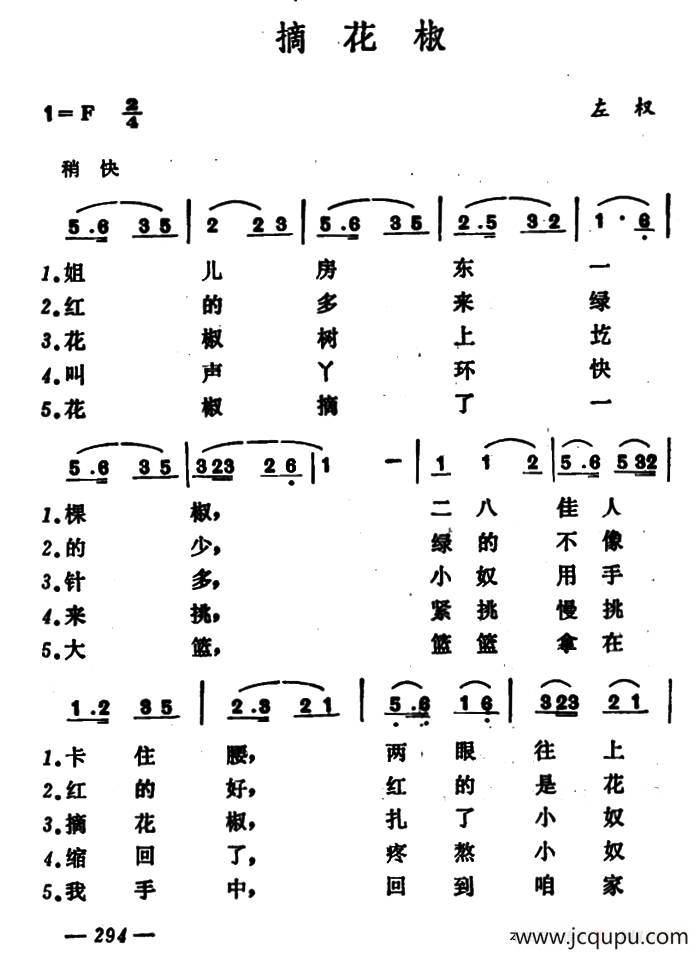 摘花椒
1=F 2/4 左权
稍快
5.6 35 | 2 23 | 5.6 35 | 2.5 32 | 1·6 |
1.姐 儿 房 东 一
2.红 的 多 来 绿
3.花 椒 树 上 圪
4.叫 声 丫 环 快
5.花 椒 摘 了 一
5.6 35 | 323 26 | 1 — | 1 1 2 | 5.6 532 |
1.棵 椒, 二八 佳人
2.的 少, 绿的 不像
3.针 多, 小奴 用手
4.来 挑, 紧挑 慢挑
5.大 篮, 篮篮 拿在
1.2 35 | 2.3 21 | 5.6 16 | 323 21 |
1.卡住 腰, 两眼 往上
2.红的 好, 红的 是花
3.摘花 椒, 扎了 小奴
4.缩回 了, 疼熬 小奴
5.我手 中, 回到 咱家
— 294 —
zwww.jcqupu.com